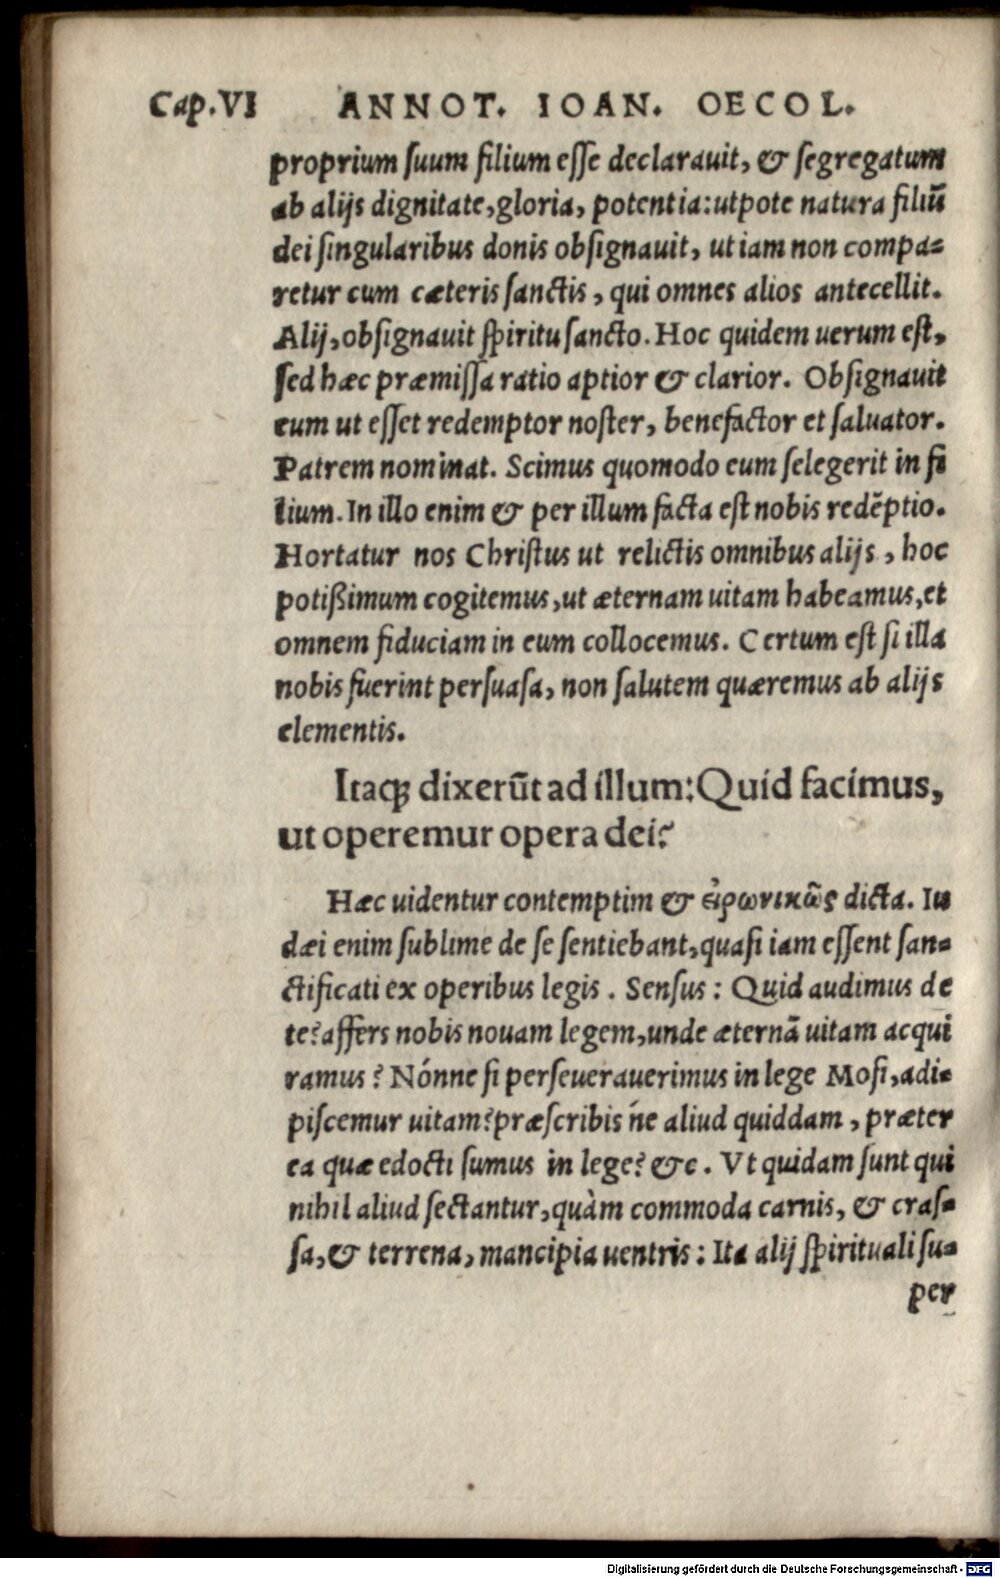 Cap.VI ANNOT. IOAN. OECOL.
proprium suum filium esse declarauit, & segregatum
ab alijs dignitate, gloria, potentia: utpote natura filiũ
dei singularibus donis obsignauit, ut iam non compa-
retur cum cæteris sanctis, qui omnes alios antecellit.
Alij, obsignauit spiritu sancto. Hoc quidem uerum est,
sed hæc præmissa ratio aptior & clarior. Obsignauit
eum ut esset redemptor noster, benefactor et saluator.
Patrem nominat. Scimus quomodo eum selegerit in fi
lium. In illo enim & per illum facta est nobis redẽptio.
Hortatur nos Christus ut relictis omnibus alijs, hoc
potißimum cogitemus, ut æternam uitam habeamus, et
omnem fiduciam in eum collocemus. Certum est si illa
nobis fuerint persuasa, non salutem quæremus ab alijs
elementis.
Itaqꝫ dixerũt ad illum: Quid facimus,
ut operemur opera dei?
Hæc uidentur contemptim & εἰρωνικῶς dicta. Iu
dæi enim sublime de se sentiebant, quasi iam essent san-
ctificati ex operibus legis. Sensus: Quid audimus de
te? affers nobis nouam legem, unde æternã uitam acqui
ramus? Nónne si perseuerauerimus in lege Mosi, adi-
piscemur uitam? præscribis ńe aliud quiddam, præter
ea quæ edocti sumus in lege? &c. Vt quidam sunt qui
nihil aliud sectantur, quàm commoda carnis, & cras-
sa, & terrena, mancipia uentris: Ita alij spirituali su-
per
Digitalisierung gefördert durch die Deutsche Forschungsgemeinschaft - DFG